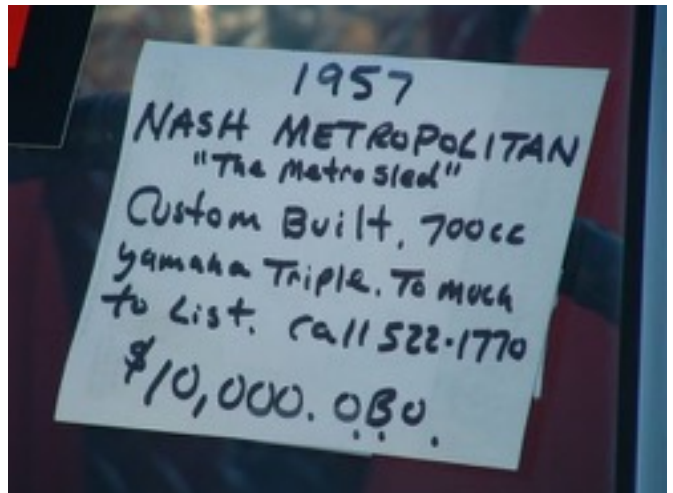 1957
NASH METROPOLITAN
"The Metrosled"
Custom Built, 700cc
yamaha Triple. To much
to List. Call 522-1770
$10,000. OBO.